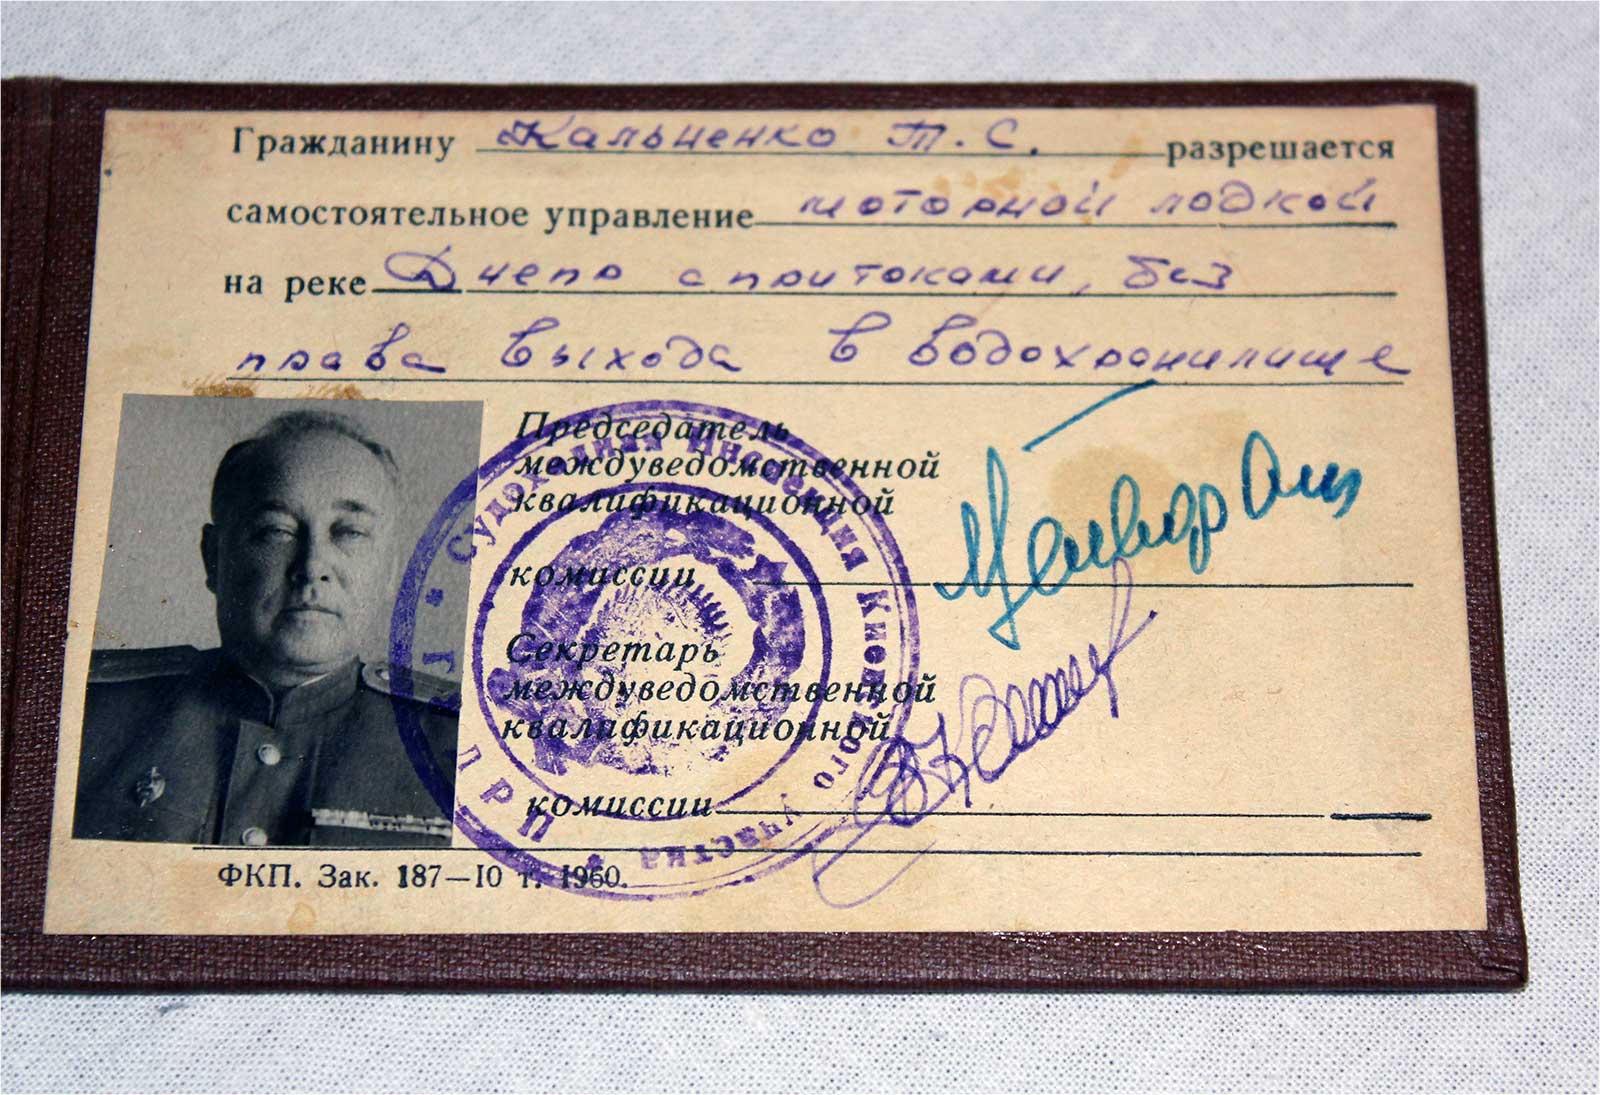 Гражданину Кальценко Т. С. разрешается
самостоятельное управление моторной лодкой
на реке Днепр с притоками, без
права выхода в водохранилище
Председатель
междуведомственной
квалификационной
комиссии
Секретарь
междуведомственной
квалификационной
комиссии
Судоходная Инспекция Киевского участка
ФКП. Зак. 187—10 т. 1960.